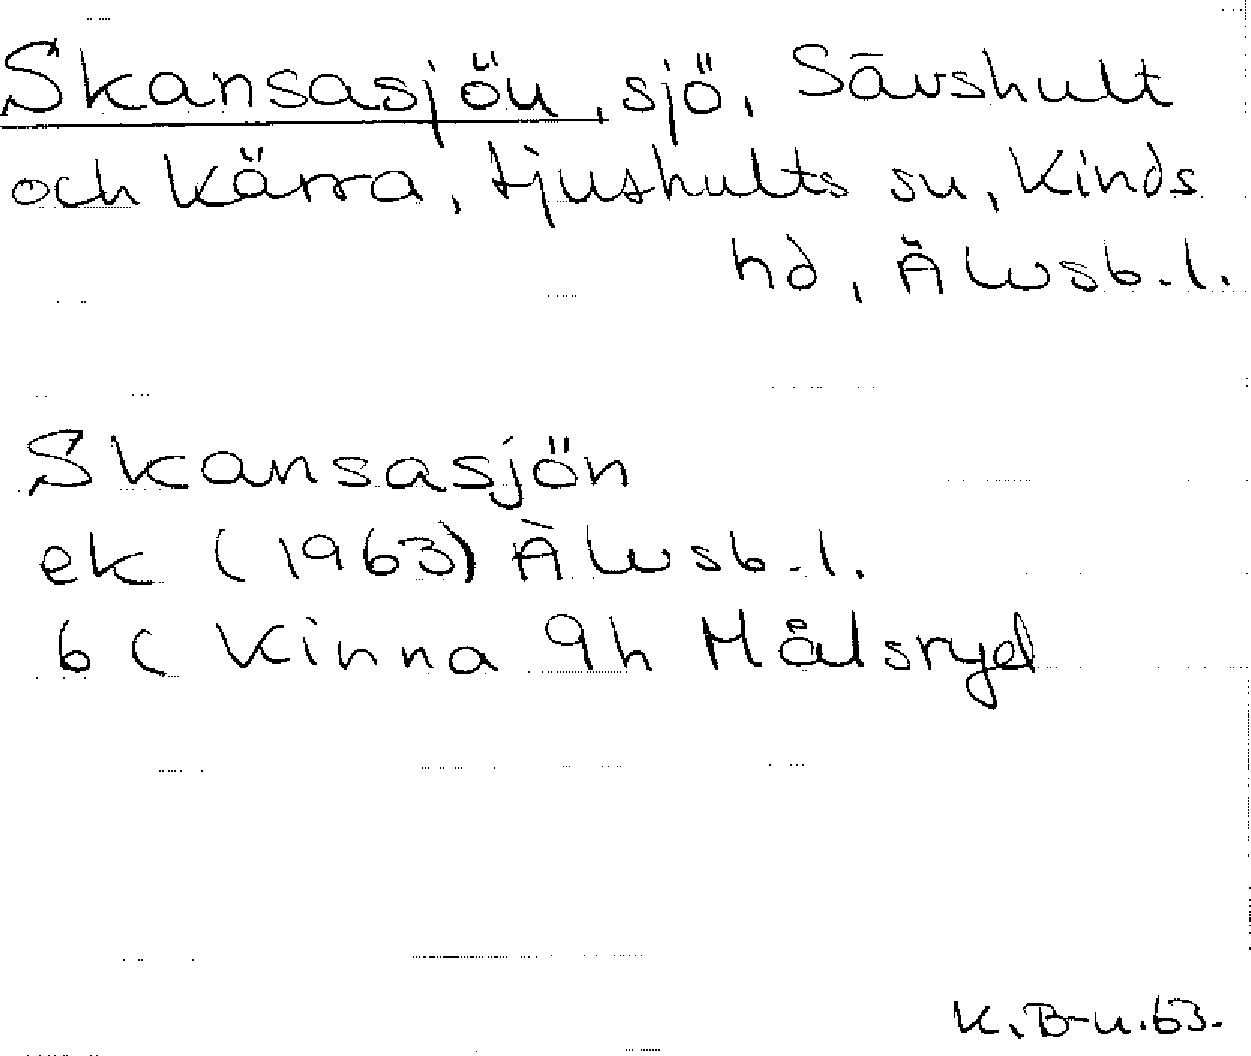 Skansasjön, sjö, Sävshult
och Kärra, Ljushults sn, Kinds
hd, Älvsb. l.
Skansasjön
ek (1963) Älvsb. l.
6 C Kinna 9h Målsryd
K. B-n. 63.